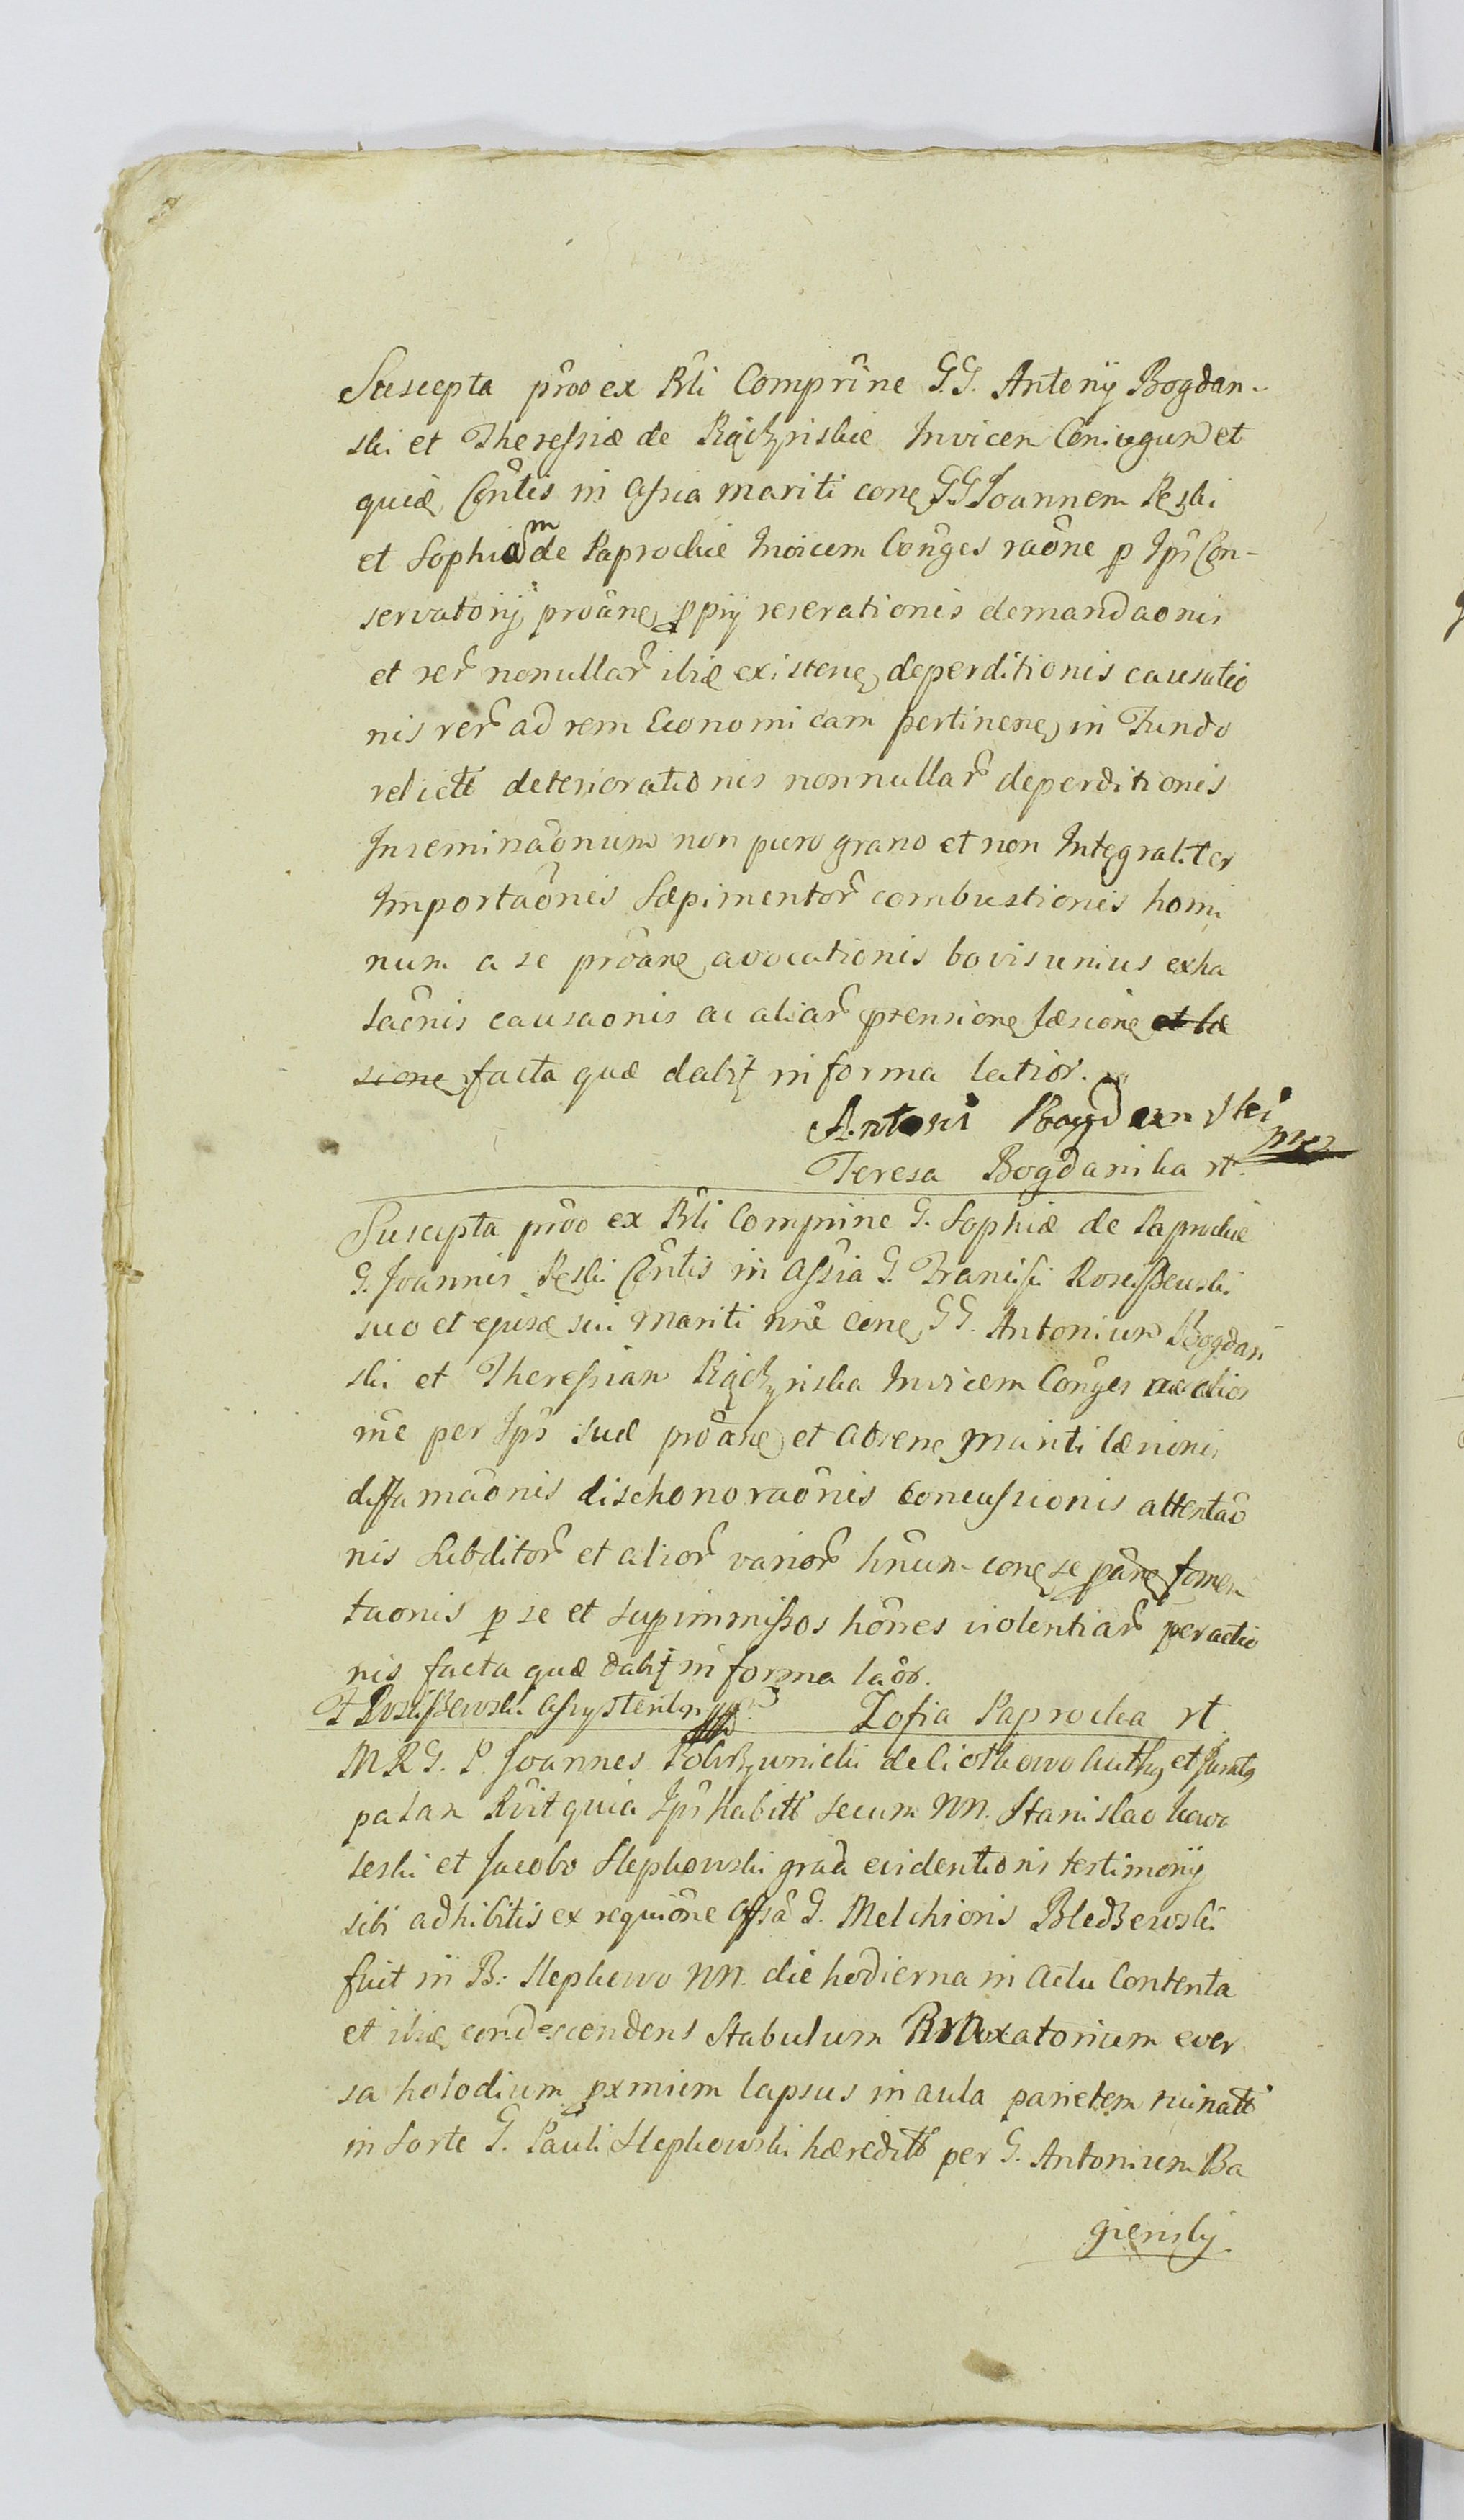 Suscepta prõo ex Rli Comprine G.G. Antonij Bogdan-
ski et Theressiæ de Rączynskie Invicem Coniugum et
quidē Contis in Assia mariti conę G.G Joannem Pęski
et Sophiam de Paprockie Invicem Conges raõne p Ips Con-
servatorij proãnę ppij reserationis demandaonis
et rer nonullar ibiæ existenę deperditionis causatio
nis rer ad rem Economicam pertinenę in Fundo
relictt deteriorationis nonnullar deperditionis
Inseminaõnum non puro grano et non Integraliter
Importaõnis Sæpimentor combustionis homi
num a se proãnę avocationis bovis unius exha
laõnis causaonis ac aliar prensionę læsionę et læ
sionę facta quæ dabit in forma latior.
Antoni Bogdanski
mp
Teresa Bogdanska rt.
Suscepta prõo ex Rli Comprine G. Sophiæ de Paprockie
G. Joannis Pęski Contis in Assia G. Francisci
suo et ejusæ sui Mariti nñe conę GG. Antonium Bogdan
ski et Theressiam Rączynska Invicem Conges
me per Ips suæ proãnę et absenę Mariti læsionis
diffamaõnis dischonoraõnis concussionis attentaõ
nis Subditor et alior varior hñum conę se pãnę fomen
taonis p se et supimmissos hões violentiar peractio
nis facta quæ dabit in forma laõr.
Zofia Paprocka rt.
MRG. P. Joannes de Ciotkowo Authę et Juratę
palam Rvit quia Ips habitt secum NN. Stanislao
et Jacobo Slepkowski graã evidentioris testimonij
sibi adhibitis ex requiõne Offsa G. Melchioris Bledzewski
fuit in B: Slepkowo NN. die hodierna in Actu Contenta
et ibiæ condescendens Stabulum ever
sa holodium pxmium lapsus in aula parietem ruinatt
in Sorte G. Pauli Slepkowski hæreditt per G. Antonium Ba
gienskij.